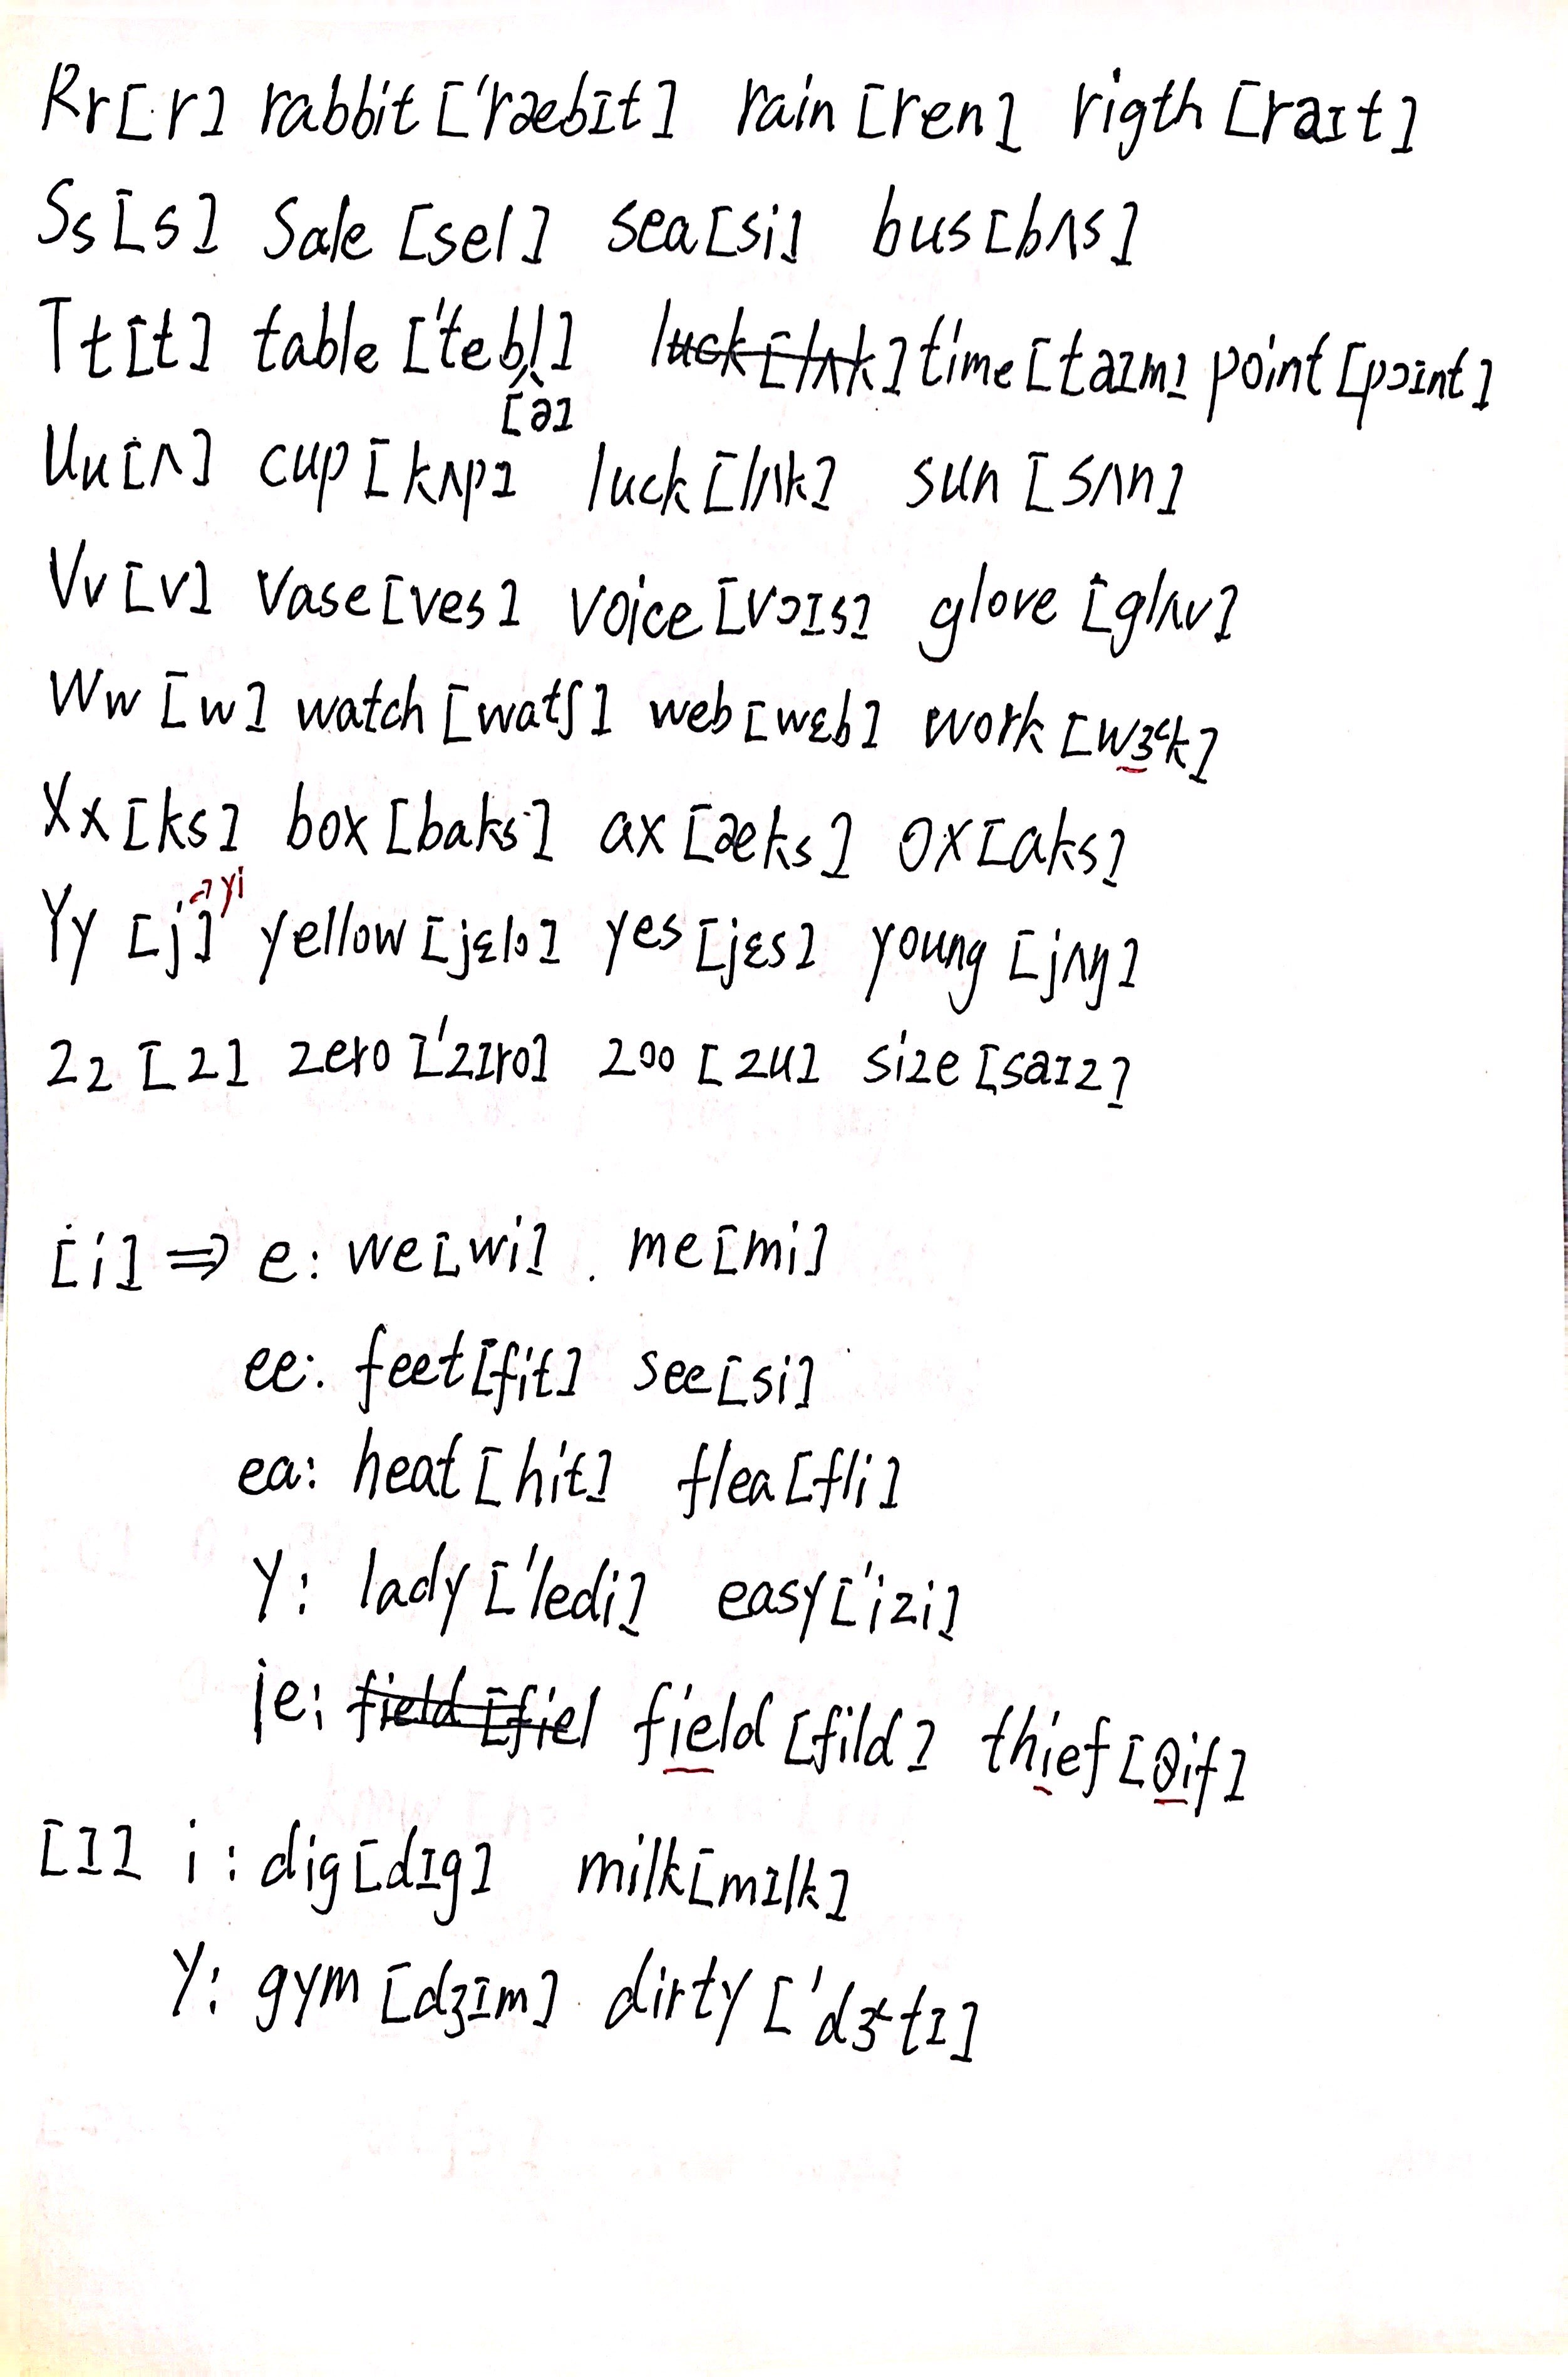 Rr [r] rabbit ['ræbɪt] rain [ren] rigth [raɪt]
Ss [s] Sale [sel] sea [si] bus [bʌs]
Tt [t] table ['tebl] luck [lʌk] time [taɪm] point [pɔɪnt]
[ə]
Uu [ʌ] cup [kʌp] luck [lʌk] sun [sʌn]
Vv [v] Vase [ves] voice [vɔɪs] glove [glʌv]
Ww [w] watch [watʃ] web [wɛb] work [wɝk]
Xx [ks] box [baks] ax [æks] ox [aks]
yi
Yy [j] yellow [jɛlo] yes [jɛs] young [jʌŋ]
Zz [z] zero ['zɪro] zoo [zu] size [saɪz]
[i] ⇒ e: we [wi] . me [mi]
ee: feet [fit] see [si]
ea: heat [hit] flea [fli]
Y: lady ['ledi] easy ['izi]
ie: field [fiel field [fild] thief [θif]
[ɪ] i: dig [dɪg] milk [mɪlk]
Y: gym [dʒɪm] dirty ['dɝtɪ]